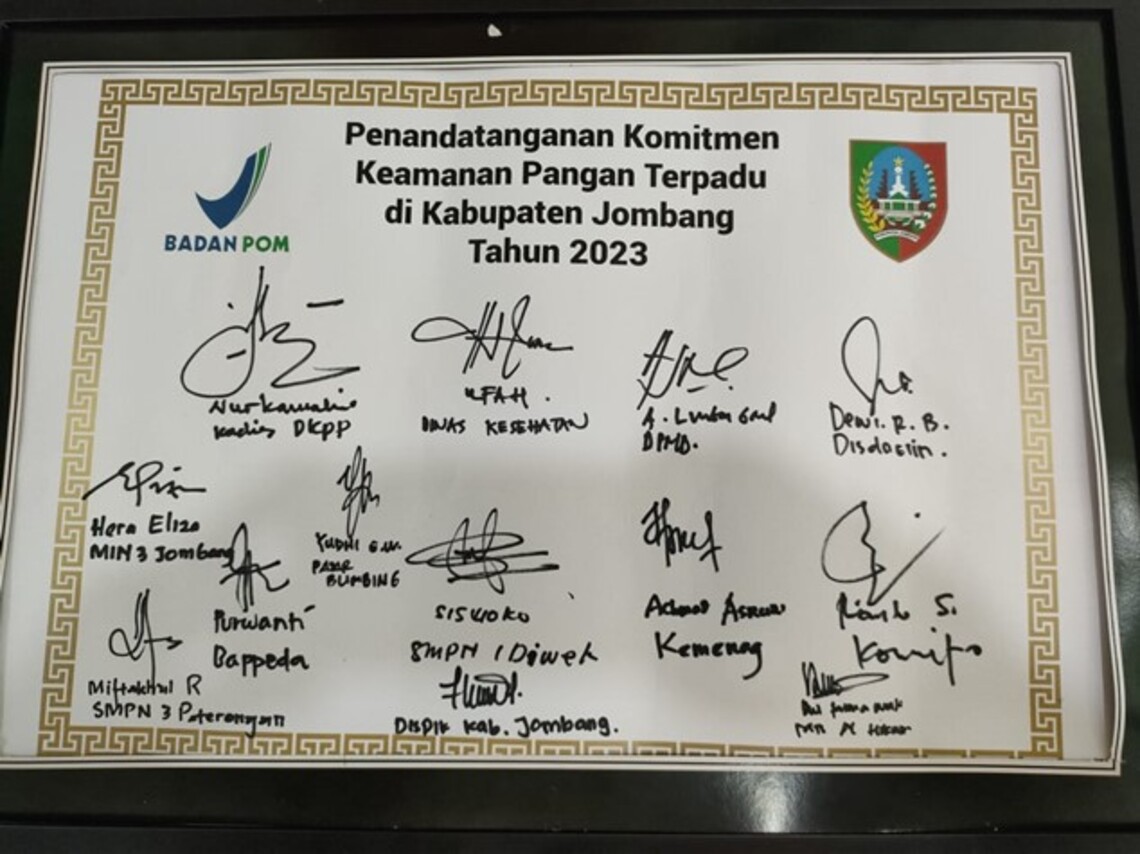 Penandatanganan Komitmen
Keamanan Pangan Terpadu
di Kabupaten Jombang
Tahun 2023
BADAN POM
Kadis DKPP
ULFAH.
DINAS KESEHATAN
DPMD.
Dewi. R. B.
Disdagrin.
Hera Eliza
MIN 3 Jombang
YUDHI G.W.
PASAR
Purwanti
Bappeda
SISWOKO
SMPN 1 Diwek
Kemenag
S.
Kominfo
Miftakhul R
SMPN 3 Peterongan
DISDIK Kab. Jombang.